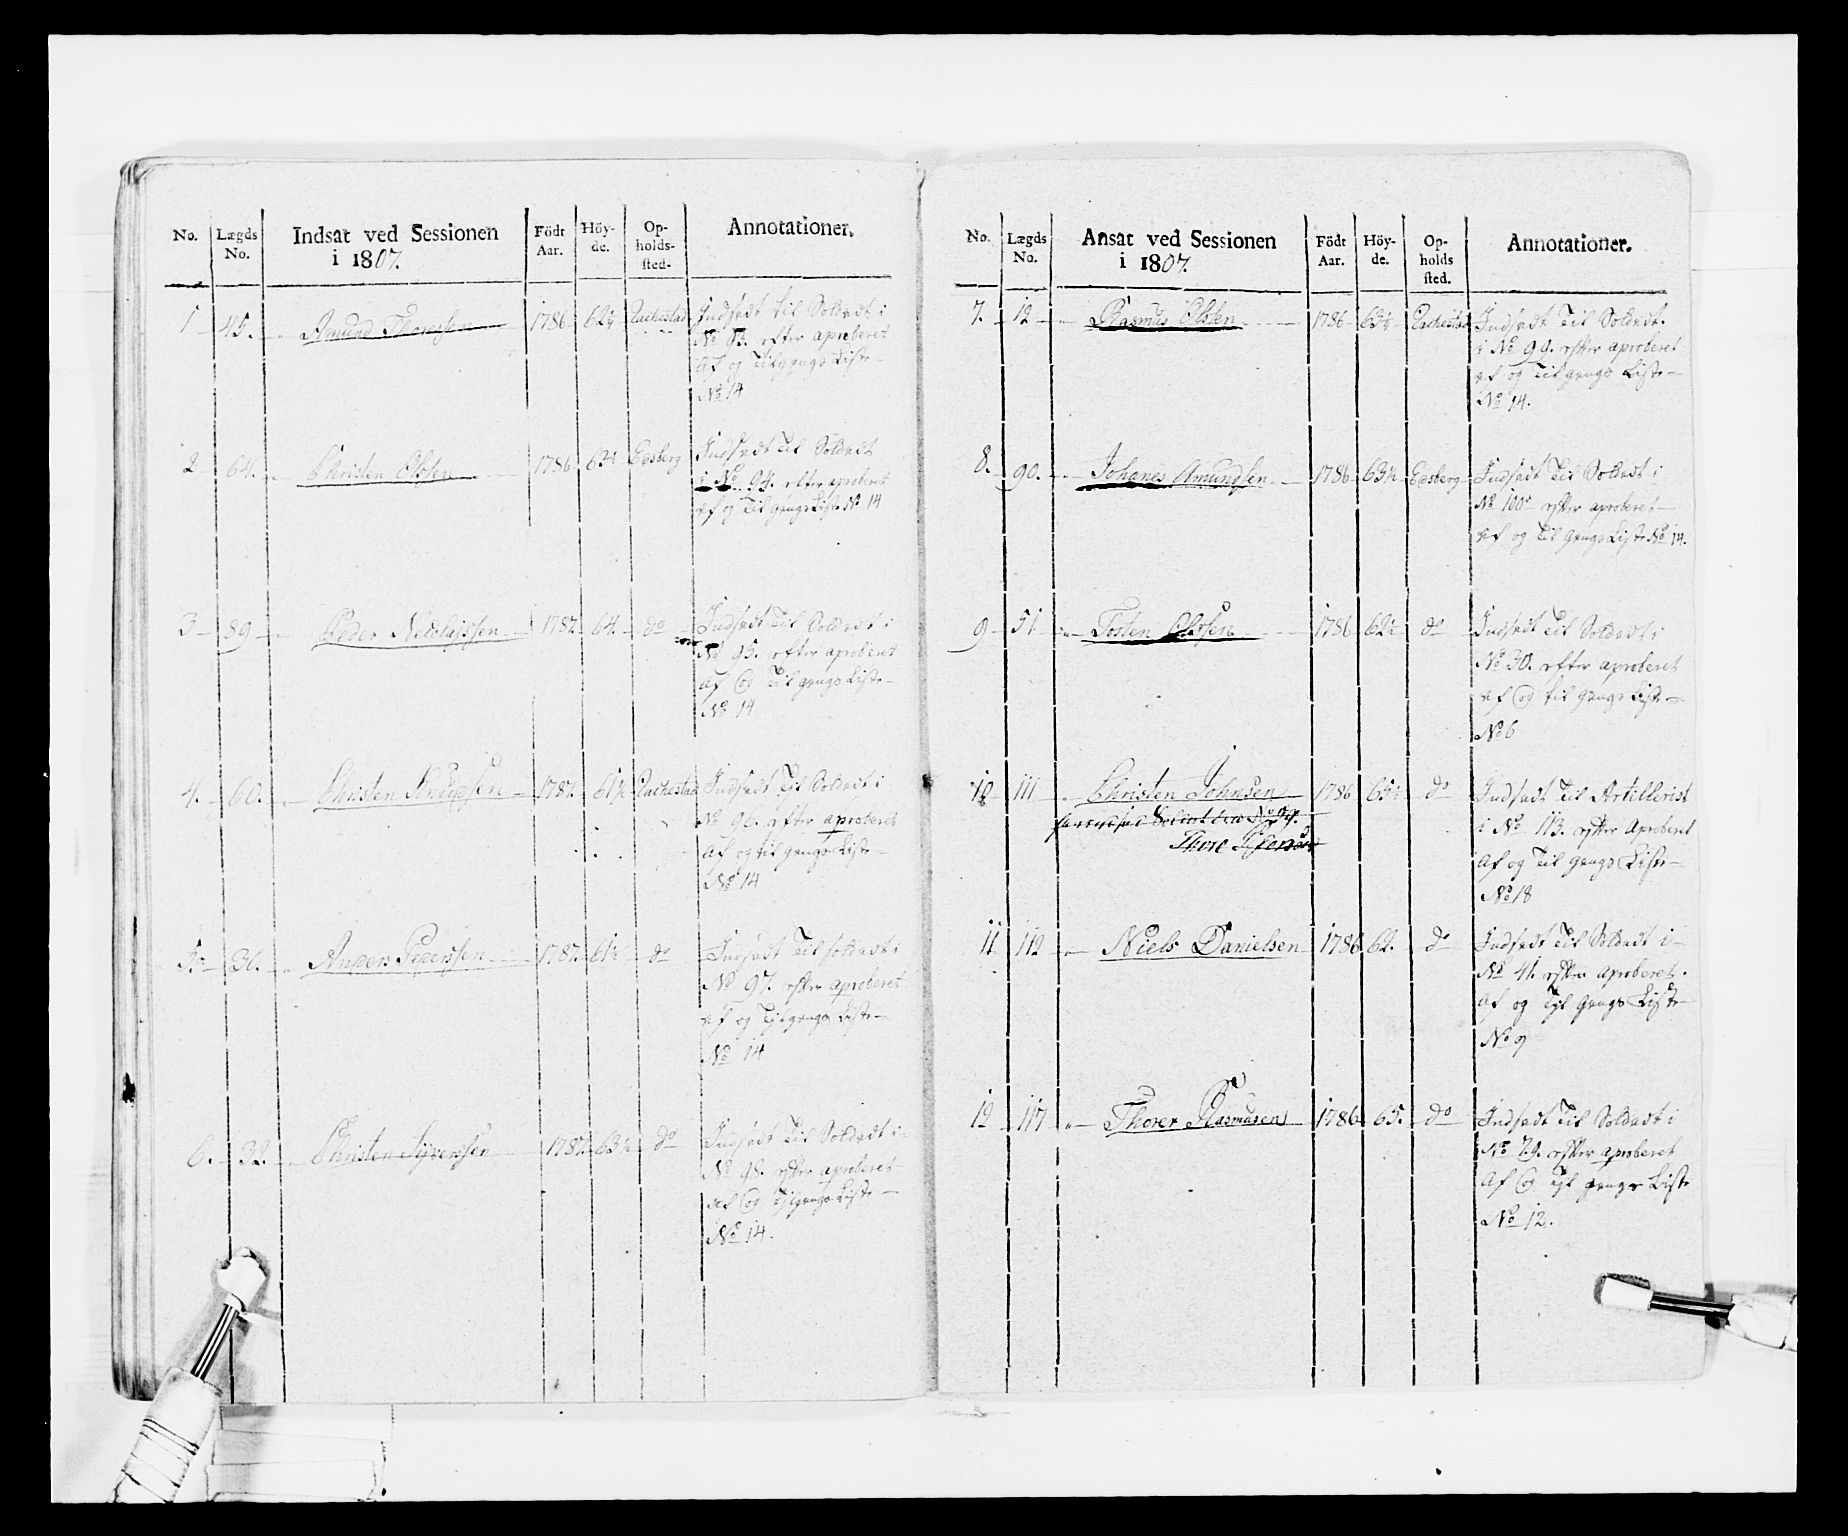 No. Lægds No. Indsat ved Sessionen i 1807. Födt Aar. Höy-de. Op-holds-sted. Annotationer.
1 45. Amund Thoressen 1786 62½ Rachestad Indsadt til Soldadt i
No 93. efter aproberet
Af og Tilgangs Liste
No 14
2 64. Christen Olssen 1786 63½ Edsberg Indsadt Til Soldadt
i No 94. efter aproberet
af og Til gangs Liste No 14
3 89 Peder Nicolajssen 1787. 64. do Indsadt Til Soldadt i
No 95. efter aproberet
Af Og Til gangs Liste
No 14
4. 60. Christen 1787. 61½ Rachestad Indsadt Til Soldadt i
No 96. efter aproberet
Af og til gangs Liste
No 14
5. 30. Anders Pederssen 1787. 61½ do Indsadt Til soldadt i
No 97. efter aproberet
af og Til gangs Liste
No 14
6. 32. Christen Syverssen 1787. 63½ do Indsadt Til Soldadt i
No 98. efter aproberet
af Og Tilgangs Liste
No 14.
No. Lægds No. Ansat ved Sessionen i 1807. Födt Aar. Höy-de. Op-holds sted. Annotationer.
7. 12 Rasmus Olsen 1786 63½ Rachestad Indsadt Til Soldadt.
i No 99. efter aproberet
af og Til gangs Liste
No 14.
8. 90. Johanes Amundsen 1786 63½ Edsberg Indsadt Til Soldadt i
No 100 efter aproberet
af og Til gangs Liste No 14.
9 51 Tosten Olssen 1786 62½ do Indsadt Til Soldadt i
No 30. efter aproberet
af Og til gangs Liste
No 6
10 111 Christen Johnsen 1786 65½ do Indsadt Til Artillerist
Soldat No
Thore
i No 113. efter Aproberet
Af og Til gangs Liste
No 18
11 112 Niels Danielsen 1786 62. do Indsadt Til Soldadt i
No 41. efter aproberet.
af og Til gangs Liste
No 9
12 117 Thorer Rasmusen 1786 65. do Indsadt Til Soldadt i
No 79. efter aproberet
Af Og Til gangs Liste
No 12.